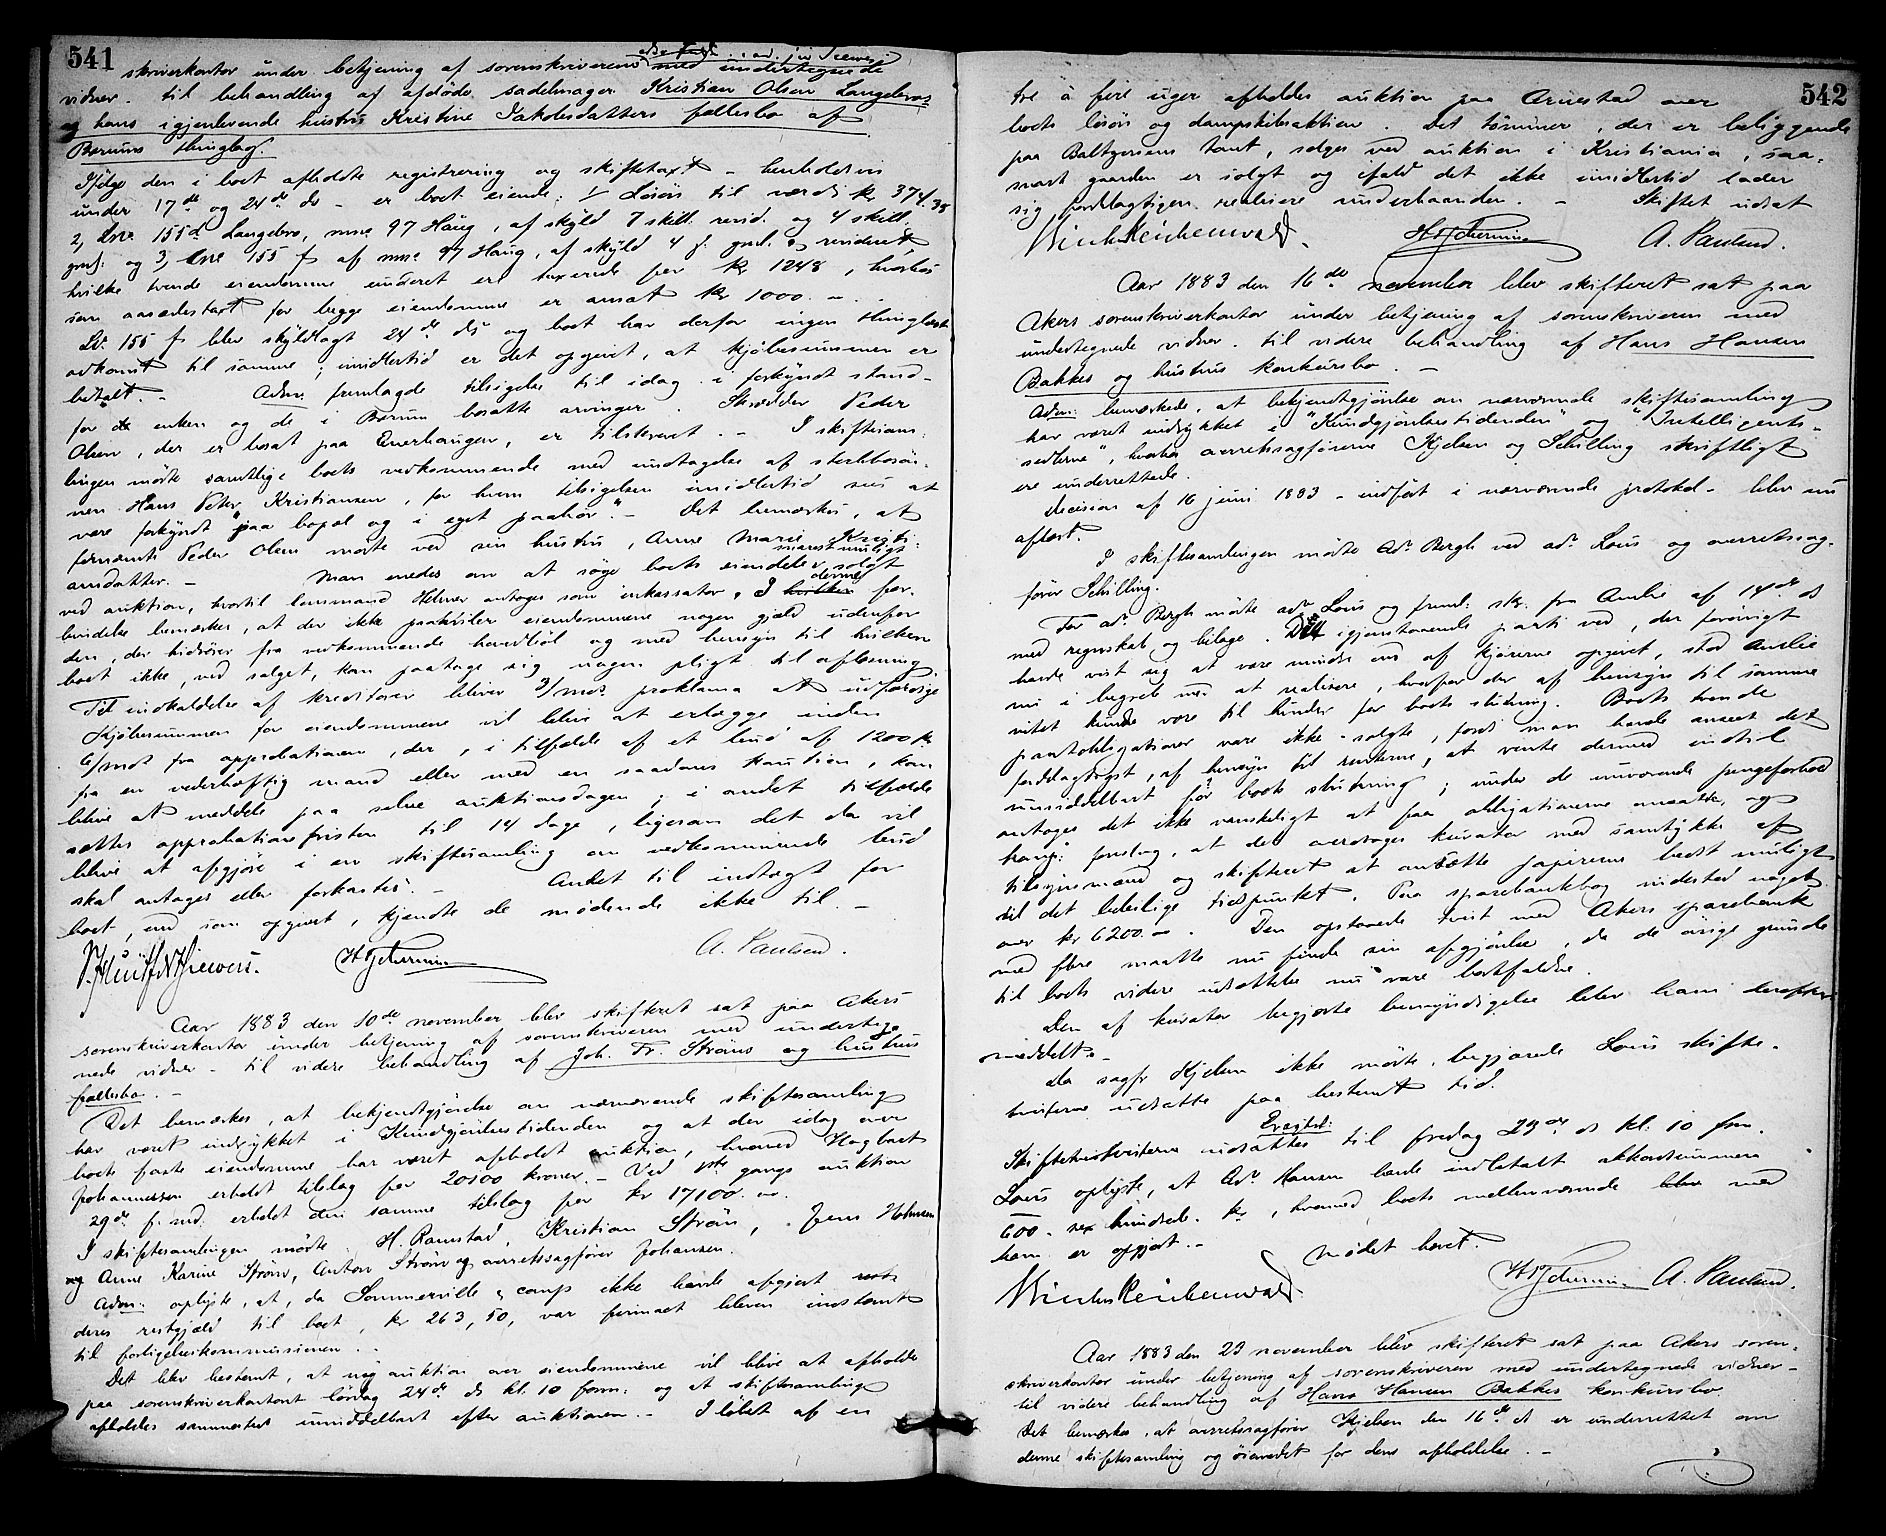 541
skriverkontor under betjening af sorenskriveren med undertegnede
vidner til behandling af afdøde sadelmager Kristian Olsen Langebros
og hans igjenlevende hustru Kristine Jakobsdatters fællesbo af
Bærums thinglag.
Ifølge den i boet afholdte registrering og skiftetaxt – henholdsvis
under 17de og 24de ds – er boets eiende: 1/ Løsøre til værdi kr 374.38
2, Lne 155d Langebro, mne 97 Haug, af skyld 7 skill. revid. og 4 skill.
gml. og 3, Lne 155 f af mne 97 Haug, af skyld 4 f. gml. og revideret,
hvilke tvende eiendomme under et er taxerede for kr 1248, hvorhos
som aasædestaxt for begge eiendomme er ansat kr 1000. – .
Lb. 155 f blev skyldlagt 24de ds og boet har derfor ingen thinglæst
adkomst til samme; imidlertid er det opgivet, at kjøbesummen er
betalt. – Adm. fremlagde tilsigelse til idag i forkyndt stand
for enken og de i Bærum bosatte arvinger. Skrædder Peder
Olsen, der er bosat paa Enerhaugen, er tilskrevet. – I skiftesam-
lingen mødte samtlige boets vedkommende med undtagelse af sterbbosøn-
nen Hans Peter Kristiansen, for hvem tilsigelsen imidlertid sees at
være forkyndt "paa bopæl og i eget paahør". – Det bemærkes, at
førnævnte Peder Olsen mødte ved sin hustru, Anne Marie Kristi-
ansdatter. – Man enedes om at søge boets eiendele snarest muligt solgt
ved auktion, hvortil lensmand Helmer antages som inkassator. I denne for-
bindelse bemærkes, at der ikke paahviler eiendommene nogen gjæld udenfor
den, der hidrører fra vedkommende hovedbøl og med hensyn til hvilken
boet ikke, ved salget, kan paatage sig nogen pligt til afløsning
Til indkaldelse af kreditorer bliver 3/mdr. proklama at udfærdige
Kjøbesummen for eiendommene vil blive at erlægge inden
6/mdr fra approbationen, der, i tilfælde af et bud af 1200 kr.
fra en vederhæftig mand eller med en saadans kaution, kan
blive at meddele paa selve auktionsdagen; i andet tilfælde
sættes approbationsfristen til 14 dage, ligesom det da vil
blive at afgjøre i en skiftesamling om vedkommende bud
skal antages eller forkastes. – Andet til indtægt for
boet, end som opgivet, kjendte de mødende ikke til. –
A. Paulsen.
Aar 1883 den 10de november blev skifteret sat paa Akers
sorenskriverkontor under betjening af sorenskriveren med underteg-
nede vidner – til videre behandling af Joh. Fr. Strøms og hustrus
fællesbo. –
Det bemærkes, at bekjendtgjørelse om nærværende skiftesamling
har været indrykket i Kundgjørelsestidenden og at der idag over
boets faste eiendomme har været afholdt auktion, hvorved Hagbart
Johannessen erholdt tilslag for 20100 kroner. – Ved 1ste gangs auktion
29de f. md. erholdt den samme tilslag for kr 17100. –
I skiftesamlingen mødte H. Ramstad, Kristian Strøm, Jens Holmsen
og Anne Karine Strøm, Anton Strøm og overretssagfører Johansen.
Adm: oplyste, at, da Sommerville & comp ikke havde afgjort
deres restgjæld til boet, kr 263,50, var firmaet bleven indstevnt
til forligelseskommissionen. –
Det blev bestemt, at ny auktion over eiendommene vil blive at afholde
paa sorenskriverkontoret lørdag 24de ds kl. 10 form: og at skiftesamling
afholdes sammesteds umiddelbart efter auktionen. – I løbet af en
542
tre à fire uger afholdes auktion paa Arnestad over
boets løsøre og dampskibsaktien. Det tømmer, der er beliggende
paa Baltzersens tomt, sælges ved auktion i Kristiania, saa-
snart gaarden er solgt og ifald det ikke imidlertid lader
sig fordelagtigen realisere underhaanden. – Skiftet udsat
A. Paulsen.
Aar 1883 den 16de november blev skifteret sat paa
Akers sorenskriverkontor under betjening af sorenskriveren med
undertegnede vidner til videre behandling af Hans Hansen
Bakkes og hustrus konkursbo. –
Adm: bemærkede, at bekjendtgjørelse om nærværende skiftesamling
har været indrykket i "Kundgjørelsestidenden" og "Intelligents-
sedlerne", hvorhos overretssagførerne Hjelsen og Schilling skriftligt
ere underrettede.
Decision af 16 juni 1883 – indført i nærværende protokol – blev nu
aflæst.
I skiftesamlingen mødte Adv. Bergh ved adv. Lous og overretssag-
fører Schilling.
For adv. Bergh mødte adv Lous og freml: skr. fra Amlie af 14de ds
med regnskab og bilage. Det igjenstaaende parti ved, der forøvrigt
havde vist sig at være mindre end af kjørerne opgivet, stod Amlie
nu i begreb med at realisere, hvorfor der af hensyn til samme
intet kunde være til hinder for boets slutning. Boets tvende
pantobligationer vare ikke solgte, fordi man havde anseet det
fordelagtigst, af hensyn til renterne, at vente dermed indtil
umiddelbart før boets slutning; under de nuværende pengeforhold
antoges det ikke vanskeligt at faa obligationerne ansatte, og
fremk: forslag, at det overdrages kurator med samtykke af
tilsynsmand og skifteret at ansætte papirerne bedst muligt
til det beleilige tidspunkt. Paa sparebankbog indestod noget
over kr 6200. –. Den opstaaede tvist med Akers sparebank
med flere maatte nu finde sin afgjørelse, da de øvrige grunde
til boets videre udsættelse nu vare bortfaldne.
Den af kurator begjærte bemyndigelse blev ham derefter
meddelt. –
Da sagfr Hjelsen ikke mødte, begjærede Lous skifte-
tvisterne udsatte paa bestemt tid.
Eragtet:
Skiftetvisterne udsættes til fredag 23de ds kl. 10 fm.
Lous oplyste, at Adv. Hansen havde indbetalt akkordsummen
600 – sex hundrede kr, hvormed boets mellemværende med
ham er opgjort. – Mødet hævet.
A. Paulsen.
Aar 1883 den 23 november blev skifteret sat paa Akers soren-
skriverkontor under betjening af sorenskriveren med undertegnede vidner –
til videre behandling af Hans Hansen Bakkes konkursbo.
Det bemærkes, at overretssagfører Hjelsen den 16de ds er underrettet om
denne skiftesamling og øiemedet for dens afholdelse. –